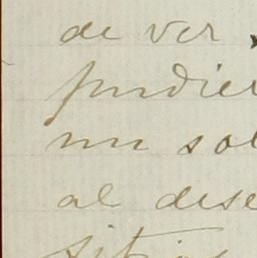 de ver
pudier
un sol
al dese